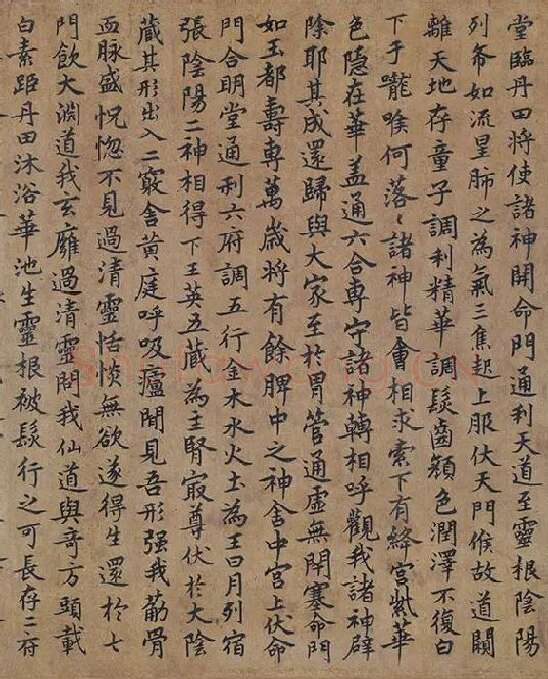 堂臨丹田將使諸神開命門通利天道至靈根陰陽
列布如流星肺之為氣三焦起上服伏天門候故道闚
離天地存童子調利精華調髮齒顏色潤澤不復白
下于嚨喉何落〻諸神皆會相求索下有絳宫紫華
色隱在華蓋通六合專守諸神轉相呼觀我諸神辟
除耶其成還歸與大家至於胃管通虛無閉塞命門
如玉都壽專萬歲將有餘脾中之神舍中宫上伏命
門合明堂通利六府調五行金木水火土為王日月列宿
張陰陽二神相得下王英五藏為主腎㝡尊伏於大陰
藏其形出入二竅舍黃庭呼吸廬間見吾形强我筋骨
血脉盛怳惚不見過清靈恬惔無欲遂得生還於七
門飲大淵道我玄廱過清靈問我仙道與奇方頭載
白素距丹田沐浴華池生靈根被髮行之可長存二府